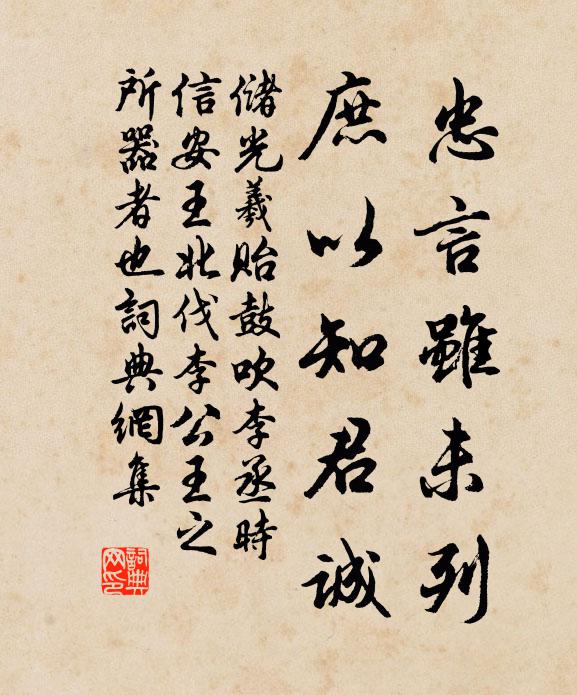 忠言雖未列
庶以知君誠
儲光羲貽鼓吹李丞時
信安王北伐李公王之
所器者也詞典網集
詞典网印